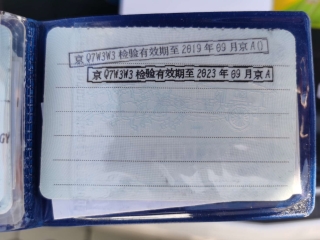 京Q7W3W3 检验有效期至2019年09月京AD
京Q7W3W3 检验有效期至2023年09月京A
GY